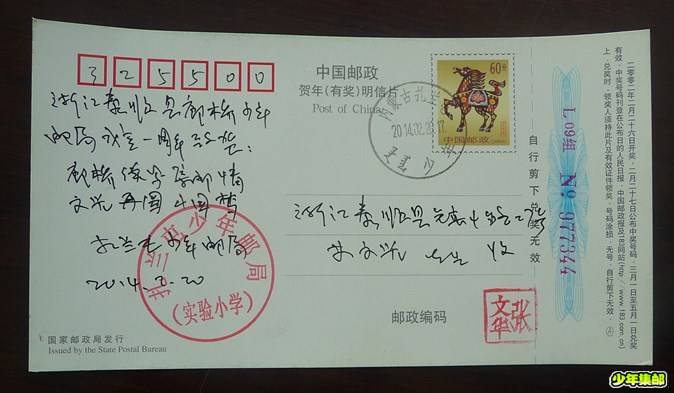 325500
浙江泰顺县廊桥少年
邮局成立一周年纪念:
廊桥
文光再圆中国梦
扎兰屯少年邮局
2014.2.20
扎兰屯市少年邮局
(实验小学)
国家邮政局发行
Issued by the State Postal Bureau
中国邮政
贺年(有奖)明信片
Post of China
60分
中国邮政
内蒙古扎兰屯
2014.02.20.17
少年邮局
浙江泰顺县
林文光 先生 收
邮政编码
张文华
自行剪下兑奖无效
L 09组 № 977344
二〇〇二年二月二十六日开奖,二月二十七日公布中奖号码,三月一日至五月一日兑奖
有效。中奖号码刊登在公布日的人民日报、中国邮政报及183网站(http://www.183.com.cn)
上。兑奖时,领奖人须持此片及有效证件领奖,号码涂损、无号、自行剪下无效。
少年集邮